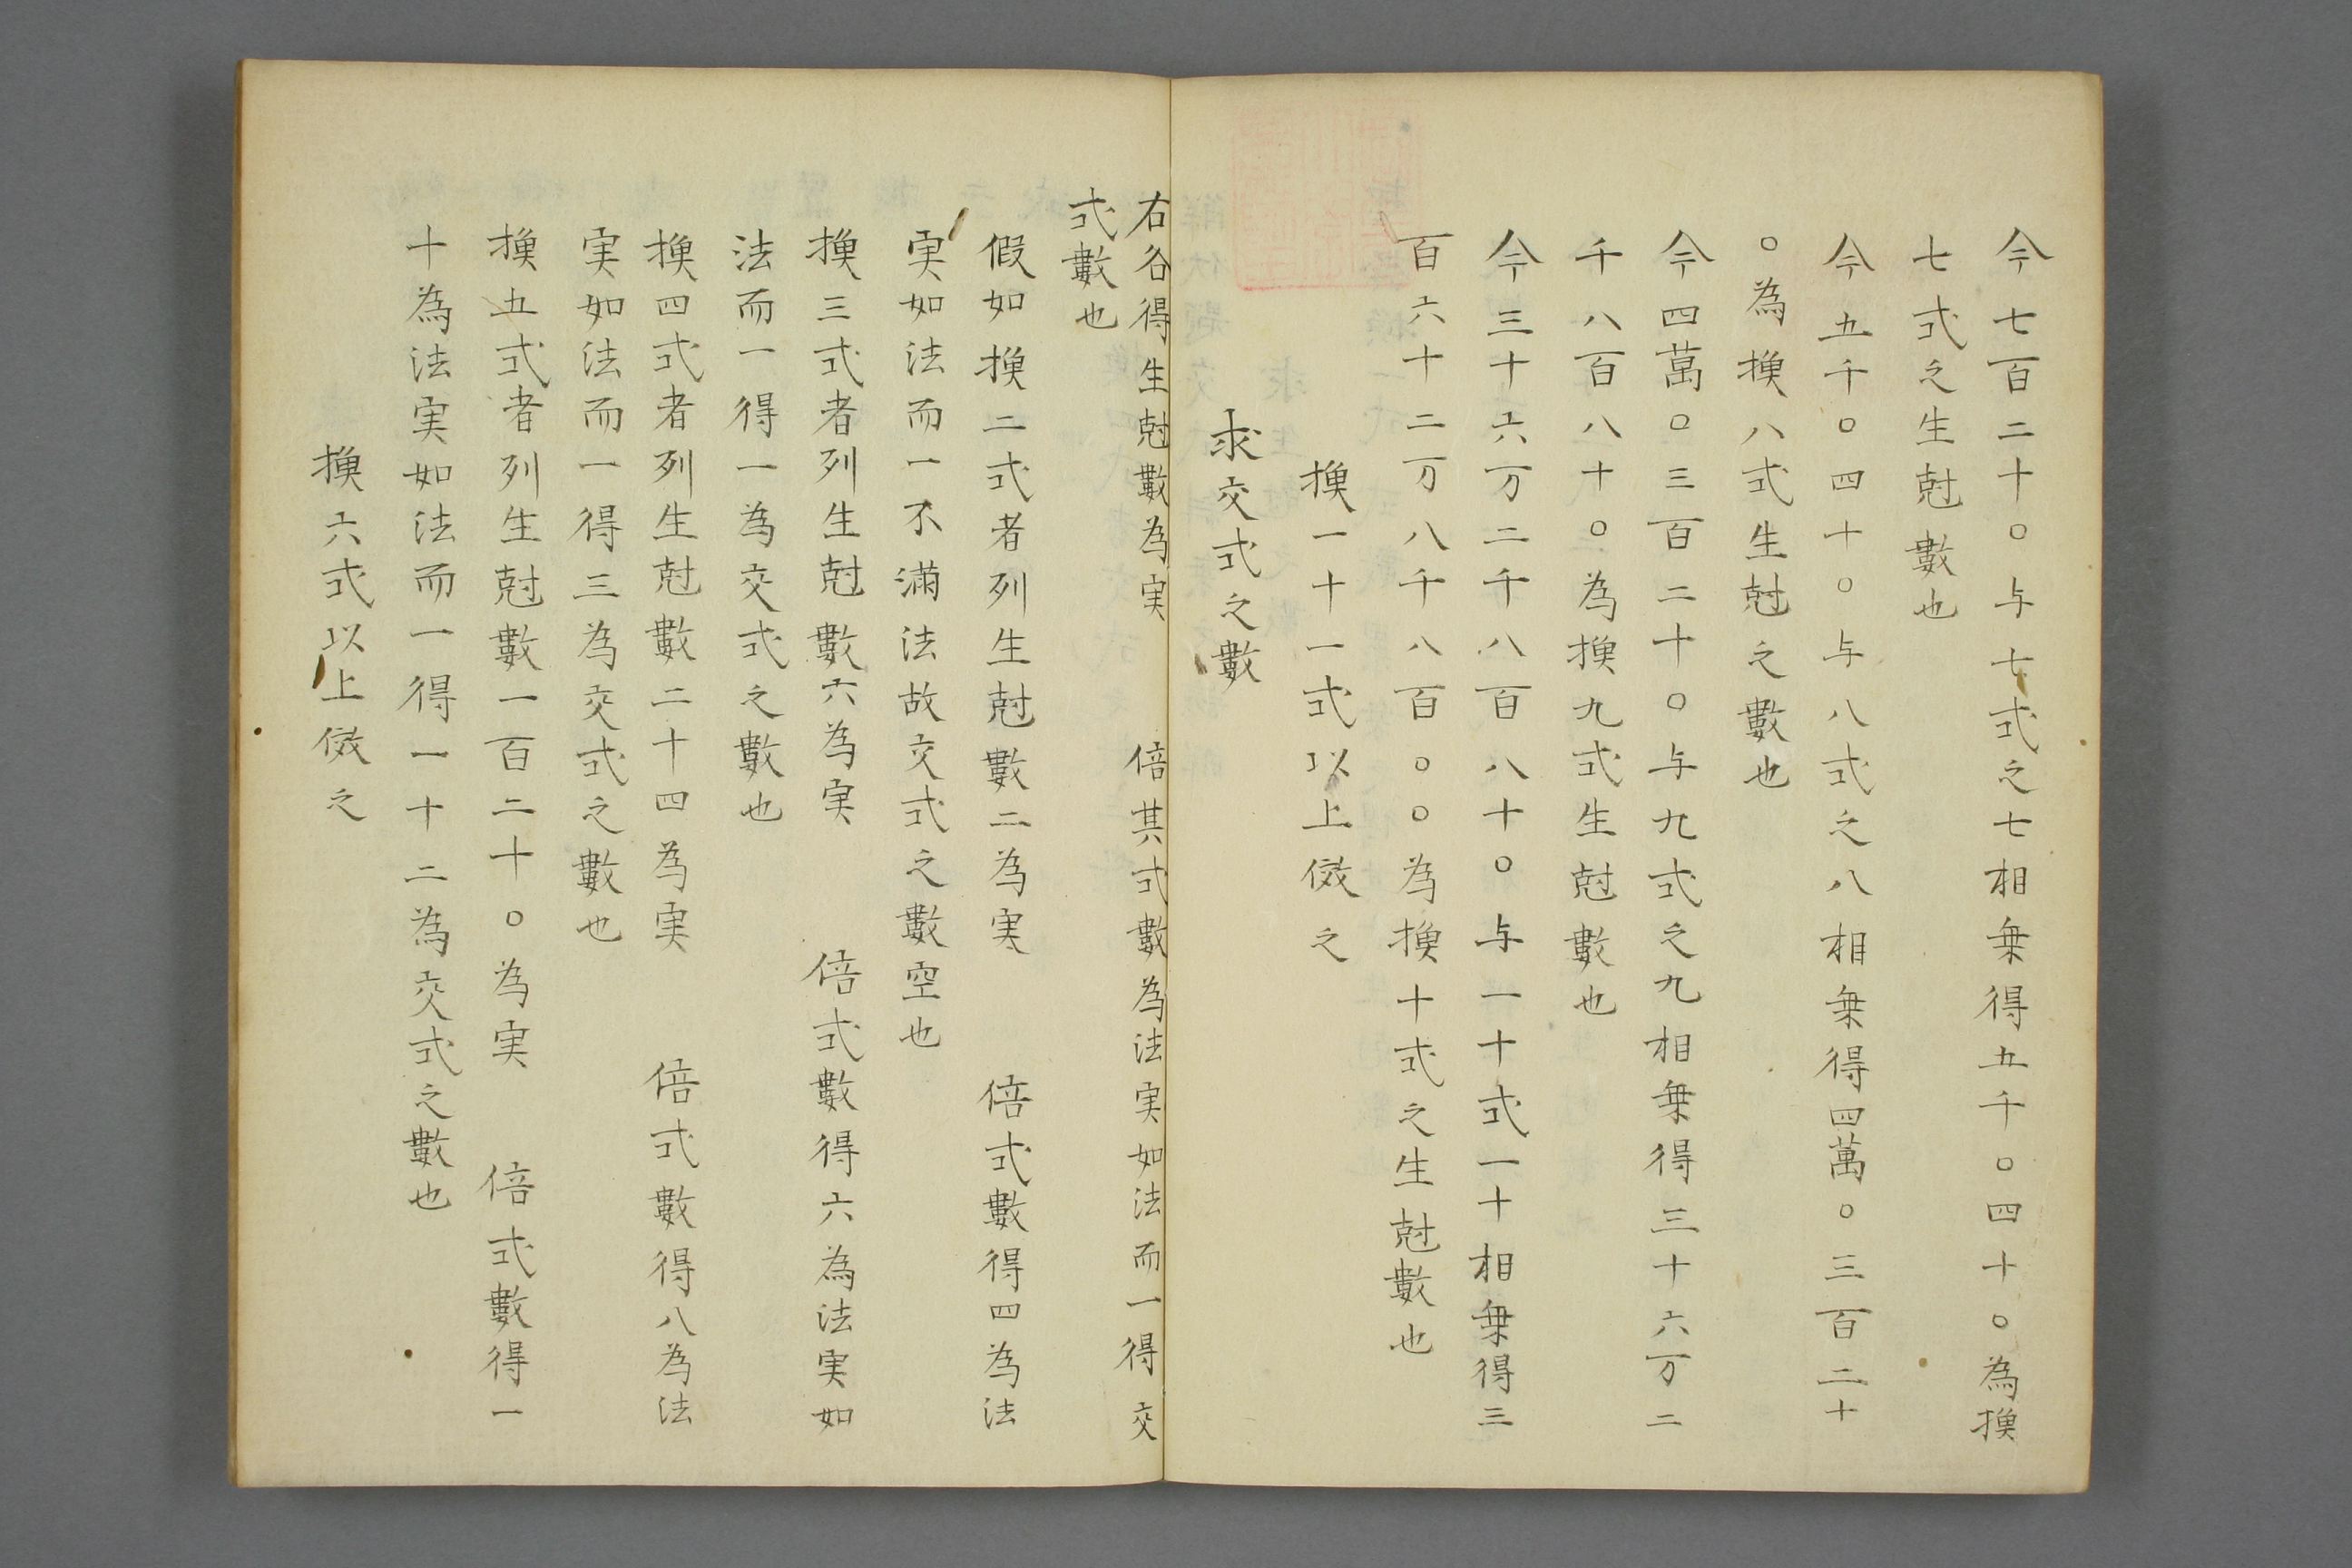 今七百二十〇与七式之七相乗得五千〇四十〇為換
七式之生尅數也
今五千〇四十〇与八式之八相乗得四萬〇三百二十
〇為換八式生尅之數也
今四萬〇三百二十〇与九式之九相乗得三十六万二
千八百八十〇為換九式生尅數也
今三十六万二千八百八十〇与一十式一十相乗得三
百六十二万八千八百〇〇為換十式之生尅數也
換一十一式以上倣之
求交式之數
右各得生尅數為実　倍其式數為法実如法而一得交
式數也
假如換二式者列生尅數二為実　倍式數得四為法
実如法而一不滿法故交式之數空也
換三式者列生尅數六為実　倍式數得六為法実如
法而一得一為交式之數也
換四式者列生尅數二十四為実　倍式數得八為法
実如法而一得三為交式之數也
換五式者列生尅數一百二十〇為実　倍式數得一
十為法実如法而一得一十二為交式之數也
換六式以上倣之